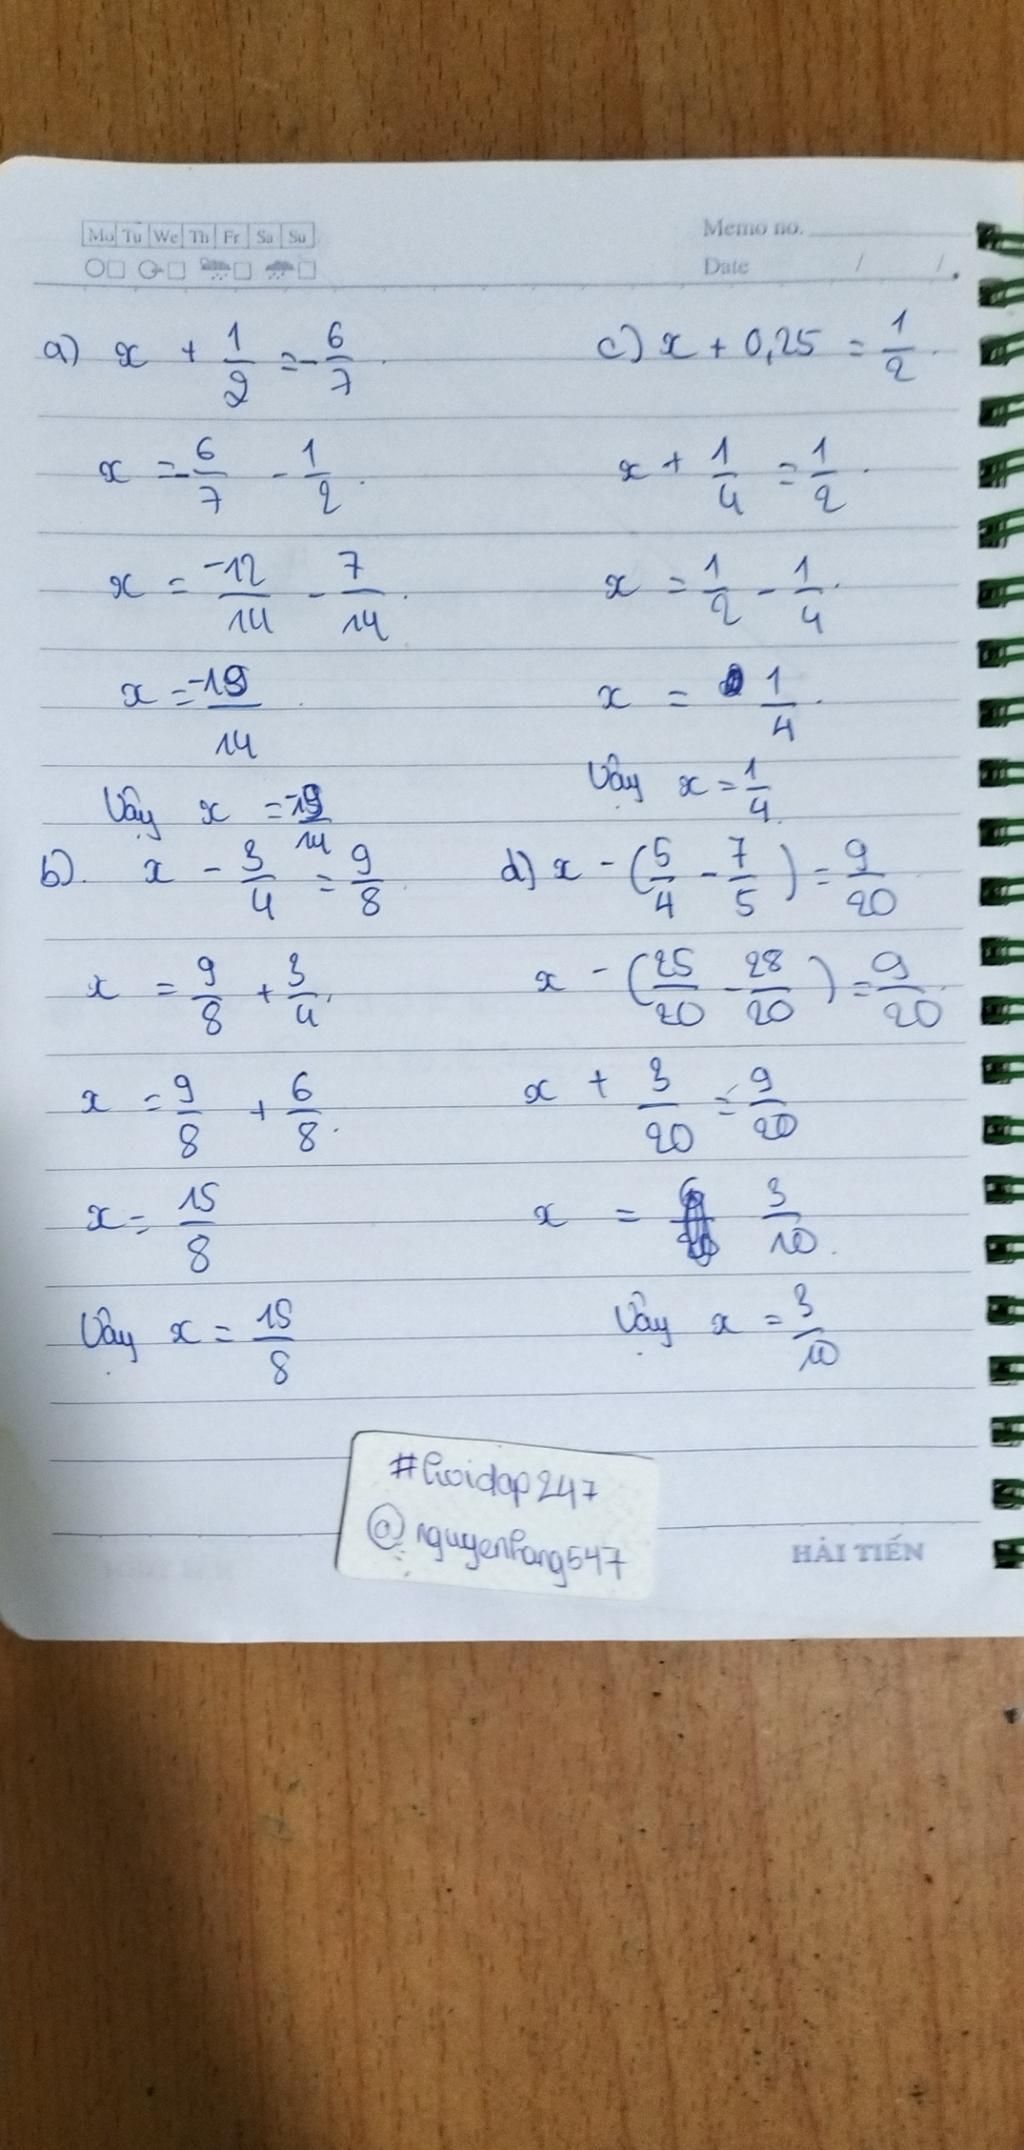 Mo Tu We Th Fr Sa Su
Memo no.
Date / /
a) x + 1/2 = -6/7
x = -6/7 - 1/2
x = -12/14 - 7/14
x = -19/14
Vậy x = -19/14
b). x - 3/4 = 9/8
x = 9/8 + 3/4
x = 9/8 + 6/8
x = 15/8
Vậy x = 15/8
c) x + 0,25 = 1/2
x + 1/4 = 1/2
x = 1/2 - 1/4
x = 1/4
Vậy x = 1/4
d) x - (5/4 - 7/5) = 9/20
x - (25/20 - 28/20) = 9/20
x + 3/20 = 9/20
x = 3/10
Vậy x = 3/10
#hoidap247
@nguyenhang547
HẢI TIẾN